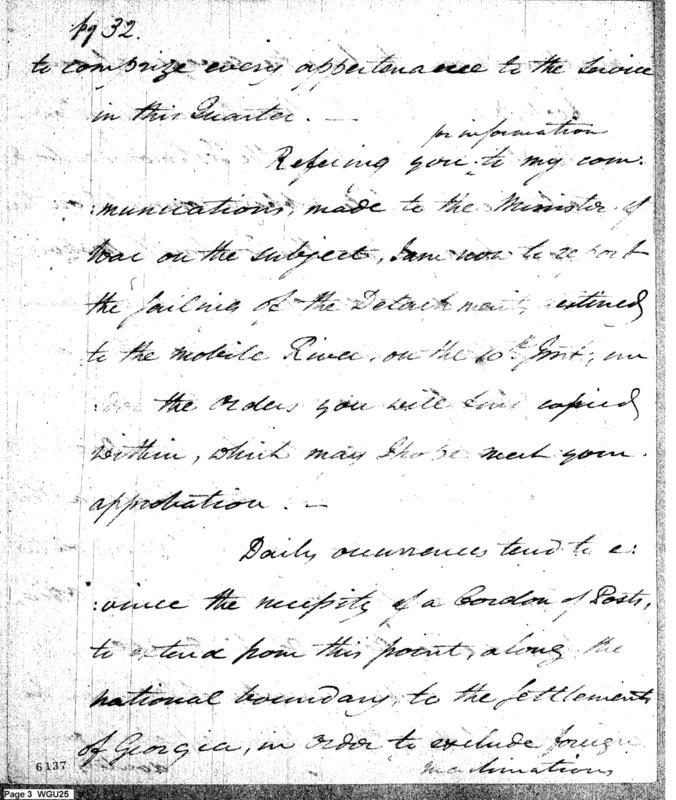 pg 32.
to comprize every appertenance to the Service
in this Quarter. —
for information
Refering you to my com:
:munications, made to the Minister of
War on the subject, I am now to report
the sailing of the Detachment, destined
to the mobile River, on the 10th Inst, un
:der the orders you will find copied
within, which may I hope meet your
approbation. —
Daily occurrences tend to e:
:vince the necessity of a Cordon of Posts,
to extend from this point, along the
national boundary, to the Settlements
of Georgia, in order to exclude foreign
machinations
6137
Page 3 WGU25